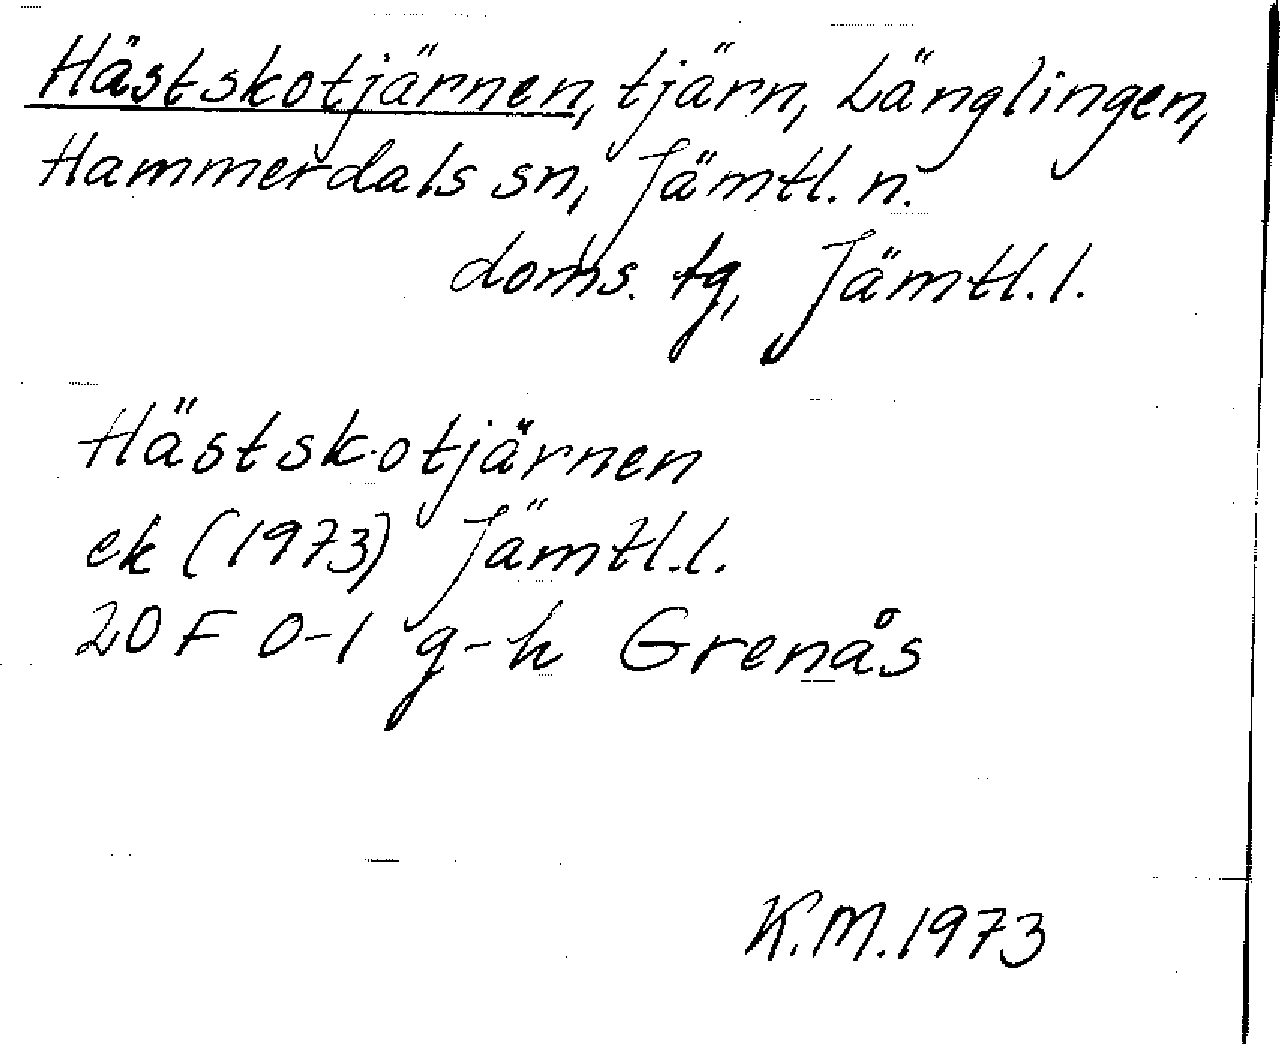 Hästskotjärnen, tjärn, Länglingen,
Hammerdals sn, Jämtl. n.
doms. tg, Jämtl. l.
Hästskotjärnen
ek (1973) Jämtl. l.
20 F 0-1 g-h Grenås
K.M. 1973